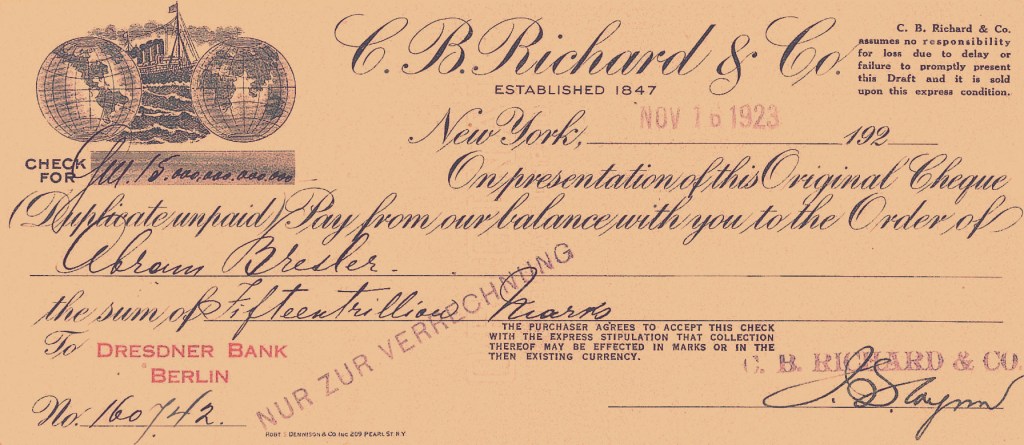 C. B. Richard & Co.
ESTABLISHED 1847
C. B. Richard & Co.
assumes no responsibility
for loss due to delay or
failure to promptly present
this Draft and it is sold
upon this express condition.
New York, NOV 16 1923 192
CHECK
FOR 15.000,000,000,000
On presentation of this Original Cheque
(Duplicate unpaid) Pay from our balance with you to the Order of
Abram Bresler.
the sum of Fifteen trillion Marks
To DRESDNER BANK
BERLIN
NUR ZUR VERRECHNUNG
THE PURCHASER AGREES TO ACCEPT THIS CHECK
WITH THE EXPRESS STIPULATION THAT COLLECTION
THEREOF MAY BE EFFECTED IN MARKS OR IN THE
THEN EXISTING CURRENCY.
C. B. RICHARD & CO.
No. 160742.
DENNISON & CO INC 209 PEARL ST N.Y.